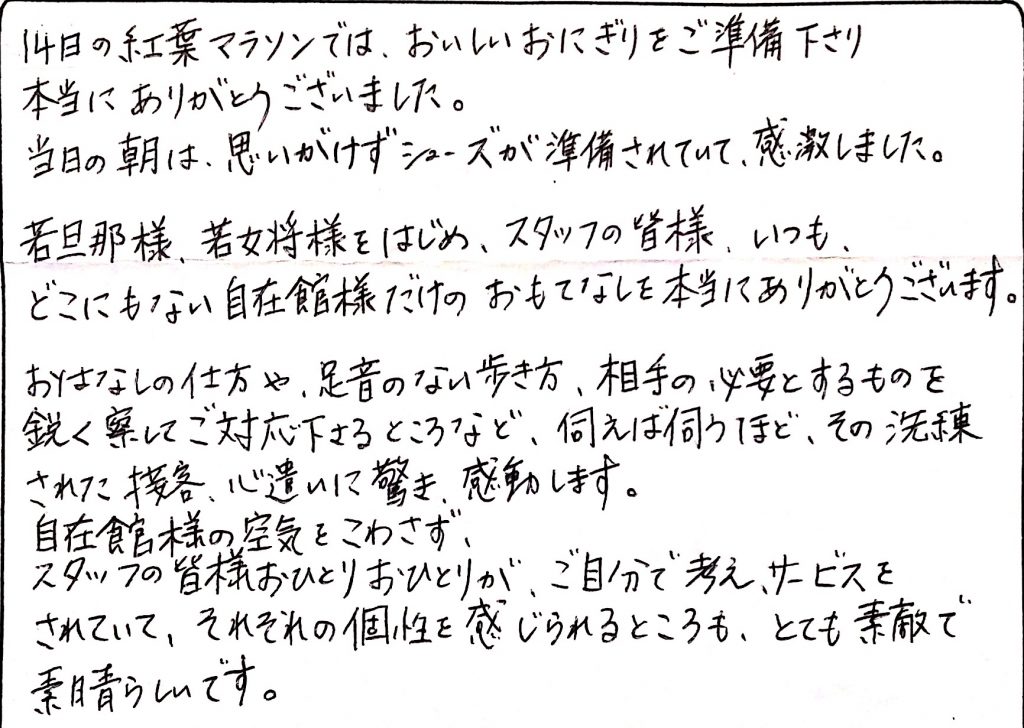 14日の紅葉マラソンでは、おいしいおにぎりをご準備下さり
本当にありがとうございました。
当日の朝は、思いがけずシューズが準備されていて、感激しました。
若旦那様、若女将様をはじめ、スタッフの皆様、いつも、
どこにもない自在館様だけのおもてなしを本当にありがとうございます。
おはなしの仕方や、足音のない歩き方、相手の必要とするものを
鋭く察してご対応下さるところなど、伺えば伺うほど、その洗練
された接客、心遣いに驚き、感動します。
自在館様の空気をこわさず、
スタッフの皆様おひとりおひとりが、ご自分で考え、サービスを
されていて、それぞれの個性を感じられるところも、とても素敵で
素晴らしいです。